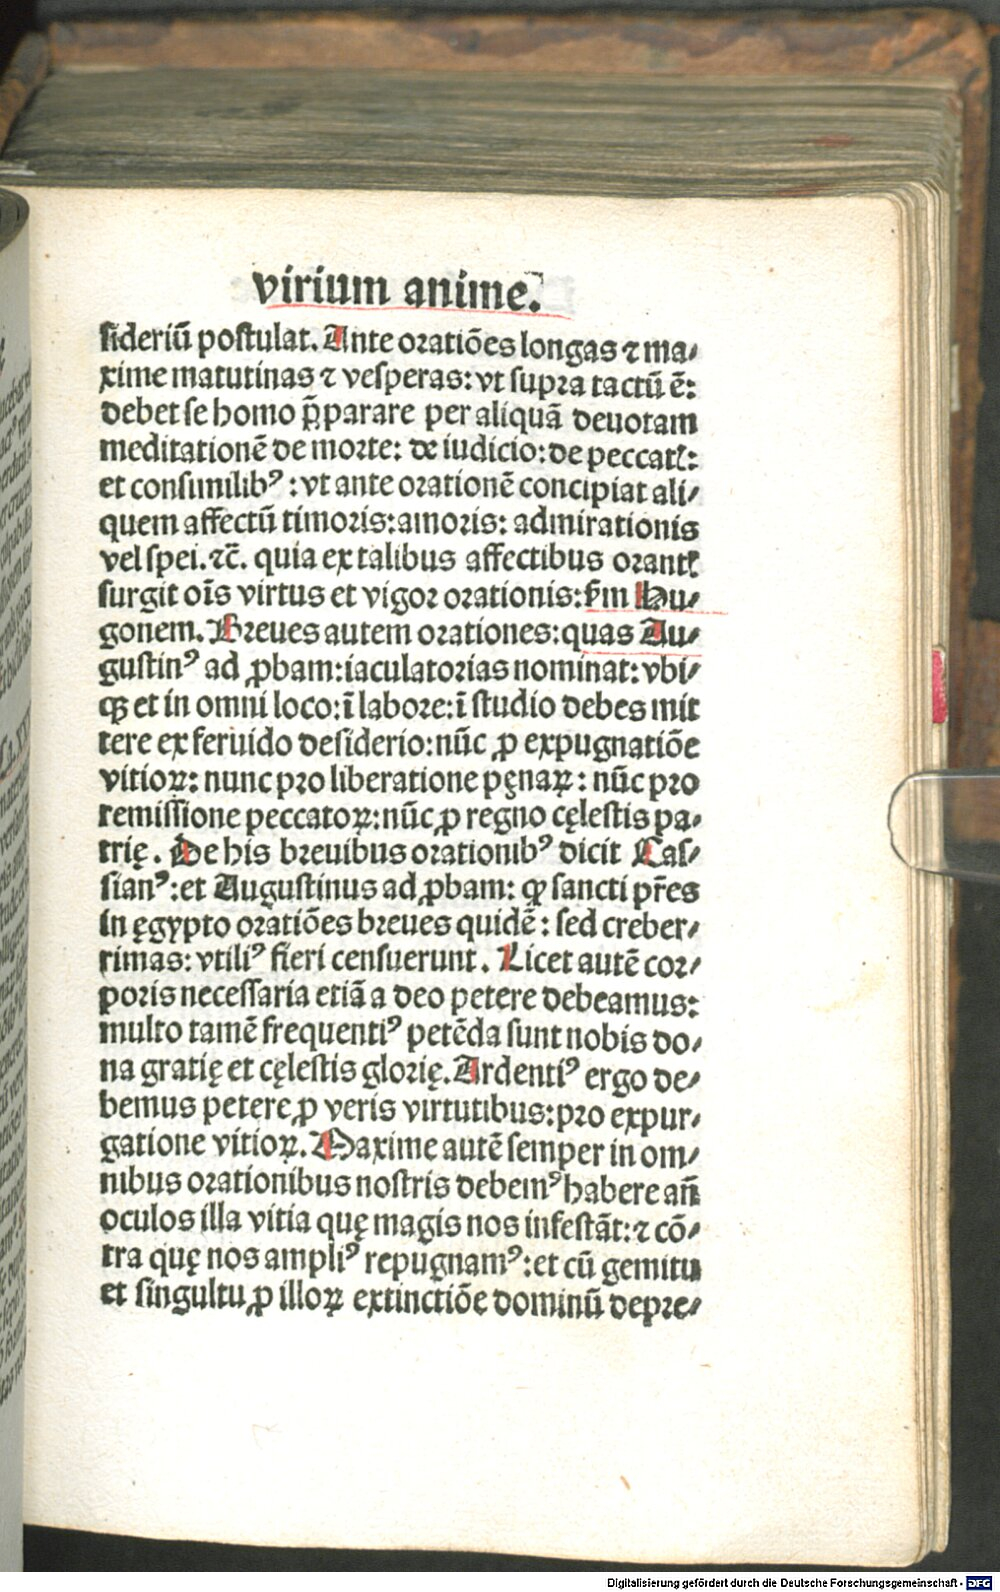 virium anime.
sideriū postulat. Ante oratiōes longas ⁊ ma⸗
xime matutinas ⁊ vesperas: vt supra tactū ē:
debet se homo p̄parare per aliquā deuotam
meditationē de morte: de iudicio: de peccatꝭ:
et consimilibꝰ: vt ante orationē concipiat ali⸗
quem affectū timoris: amoris: admirationis
vel spei. ⁊c̄. quia ex talibus affectibus orantꝭ
surgit oīs virtus et vigor orationis: ẜm Hu⸗
gonem. Breues autem orationes: quas Au⸗
gustinꝰ ad ꝓbam: iaculatorias nominat: vbi⸗
qꝫ et in omni loco: ī labore: ī studio debes mit
tere ex feruido desiderio: nūc ꝓ expugnatiōe
vitioꝝ: nunc pro liberatione pęnaꝝ: nūc pro
remissione peccatoꝝ: nūc ꝓ regno cęlestis pa⸗
trię. De his breuibus orationibꝰ dicit Cas⸗
sianꝰ: et Augustinus ad ꝓbam: ꝙ sancti pr̄es
in ęgypto oratiōes breues quidē: sed creber⸗
rimas: vtiliꝰ fieri censuerunt. Licet autē cor⸗
poris necessaria etiā a deo petere debeamus:
multo tamē frequentiꝰ petēda sunt nobis do⸗
na gratię et cęlestis glorię. Ardentiꝰ ergo de⸗
bemus petere ꝓ veris virtutibus: pro expur⸗
gatione vitioꝝ. Maxime autē semper in om⸗
nibus orationibus nostris debemꝰ habere an̄
oculos illa vitia quę magis nos infestāt: ⁊ cō⸗
tra quę nos ampliꝰ repugnamꝰ: et cū gemitu
et singultu ꝓ illoꝝ extinctiōe dominū depre⸗
Digitalisierung gefördert durch die Deutsche Forschungsgemeinschaft - DFG